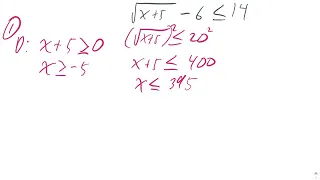 √(x+5) - 6 ≤ 14
①
D: x+5 ≥ 0
x ≥ -5
(√(x+5))² ≤ 20²
x+5 ≤ 400
x ≤ 395